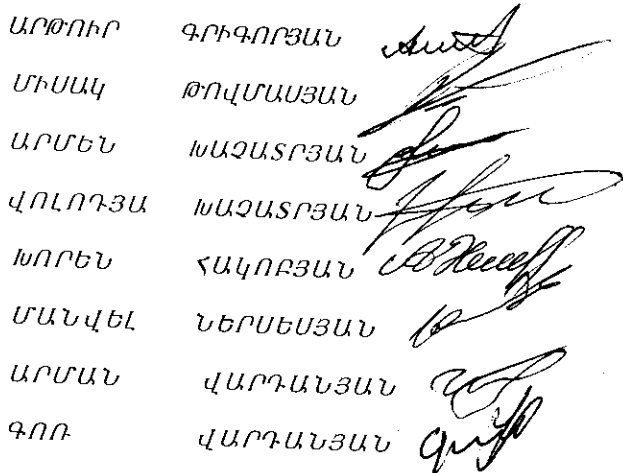 ԱՐԹՈՒՐ ԳՐԻԳՈՐՅԱՆ
ՄԻՍԱԿ ԹՈՎՄԱՍՅԱՆ
ԱՐՄԵՆ ԽԱՉԱՏՐՅԱՆ
ՎՈԼՈԴՅԱ ԽԱՉԱՏՐՅԱՆ
ԽՈՐԵՆ ՀԱԿՈԲՅԱՆ
ՄԱՆՎԵԼ ՆԵՐՍԵՍՅԱՆ
ԱՐՄԱՆ ՎԱՐԴԱՆՅԱՆ
ԳՈՌ ՎԱՐԴԱՆՅԱՆ